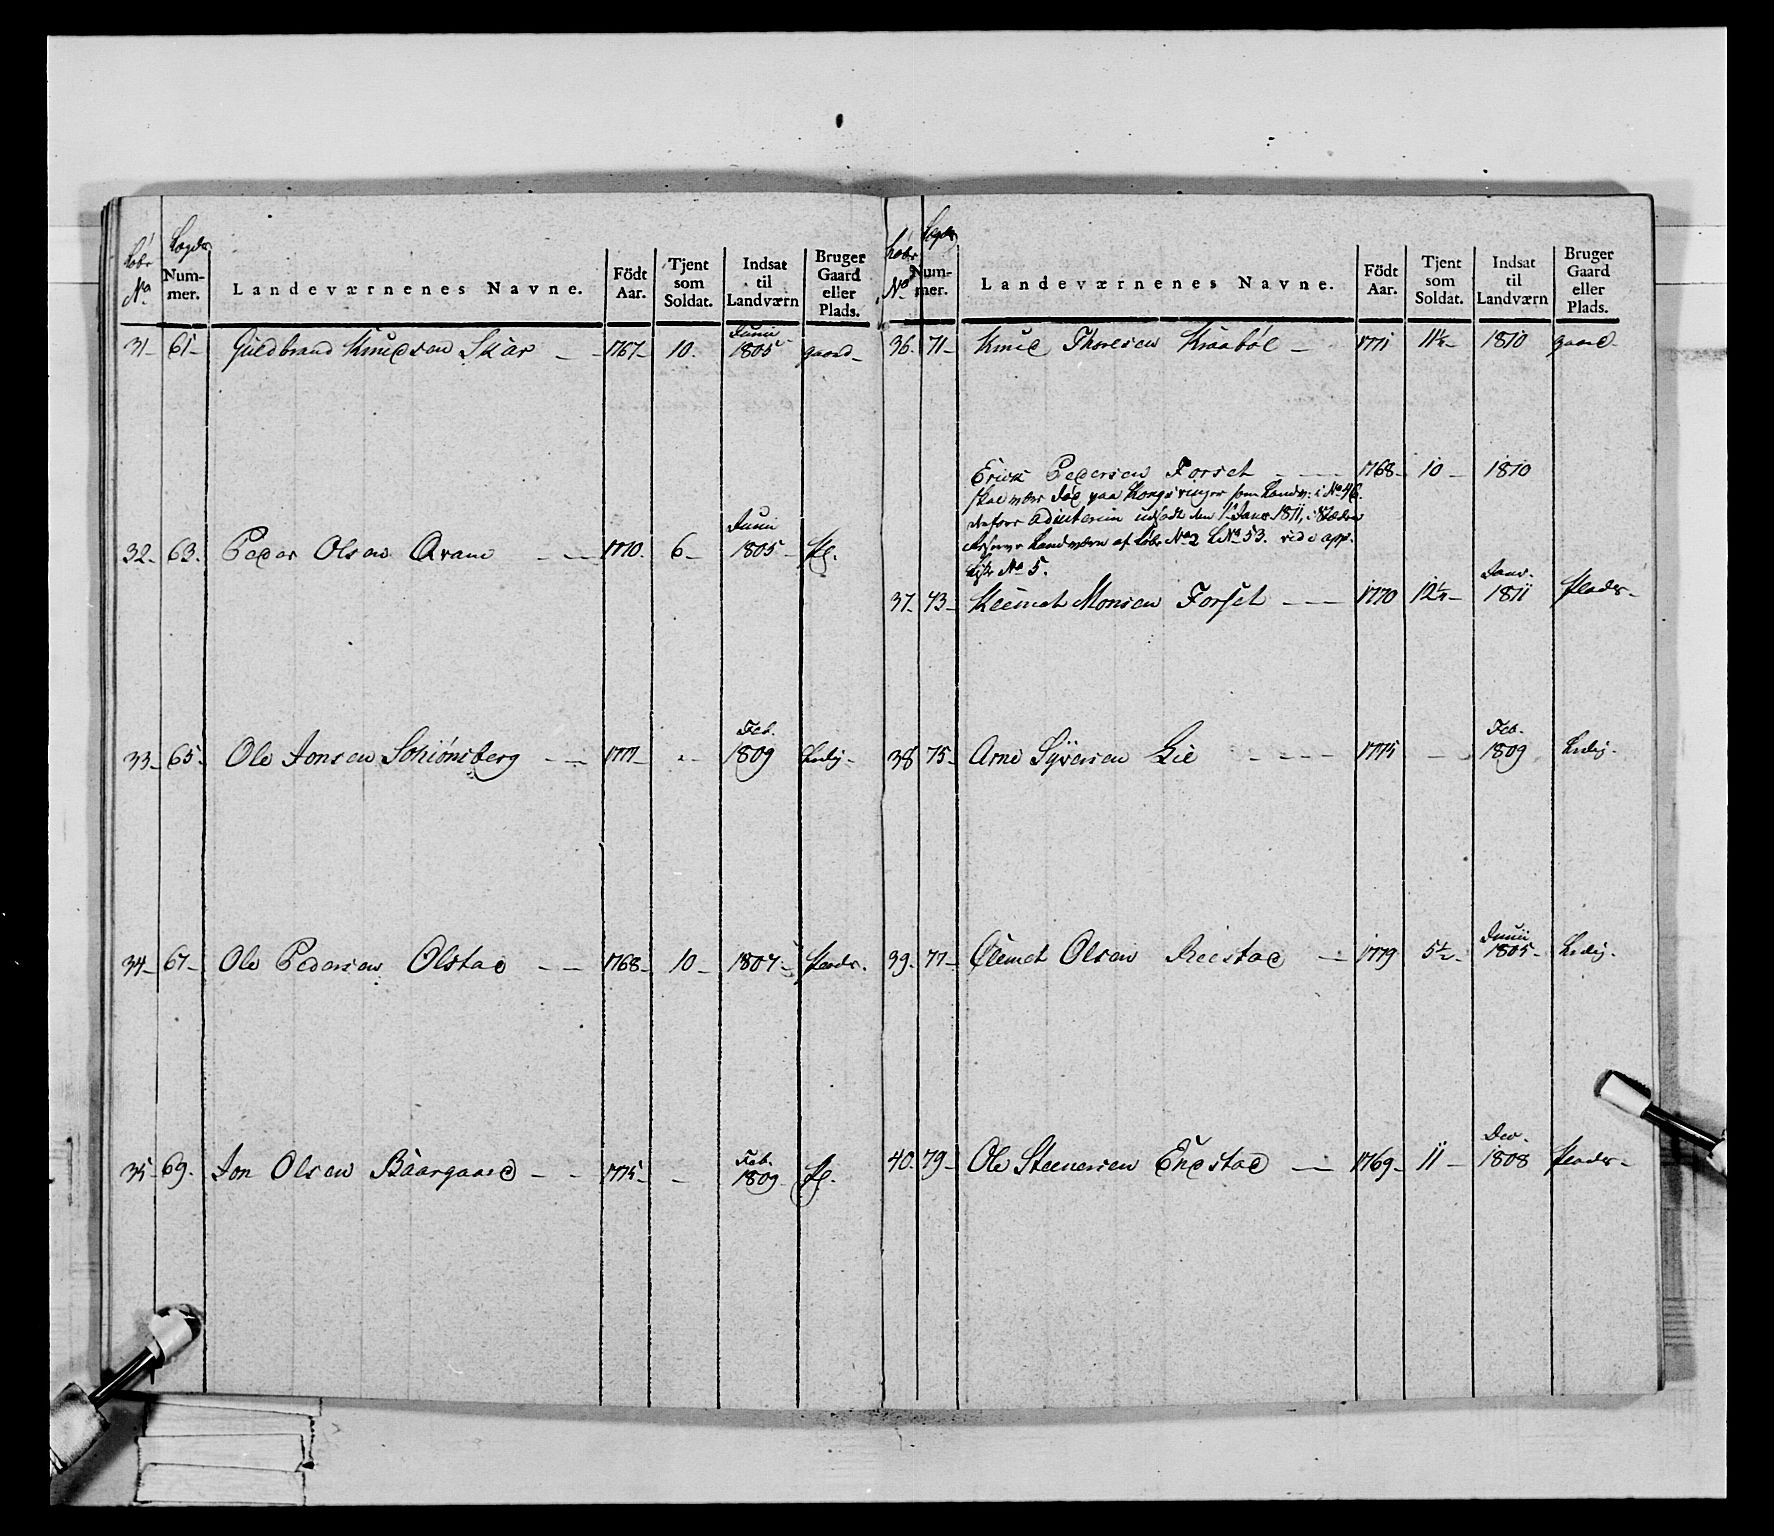 Løbr No. Lægds Num-mer. Landeværnenes Navne. Födt Aar. Tjent som Soldat. Indsat til Landværn Bruger Gaard eller Plads.
31 - 61 - Guldbrand Knudsen Skar - - 1767 - 10. Junii 1805 gaard -
32. 63. Peder Olsen Qvam - - 1770. 6 - Junii 1805 - Pl.
33 - 65 - Ole Jonsen Schiønsberg - - 1777 - - Feb. 1809 Ledig.
34 - 67 - Ole Pedersen Olstad - - 1768 - 10 - 1807 - Plads.
35 - 69. Jon Olsen Baargaard - - 1775 - - Feb. 1809 Pl.
Løbr No. Lægds Num-mer. Landeværnenes Navne. Födt Aar. Tjent som Soldat. Indsat til Landværn Bruger Gaard eller Plads.
36. 71 - Knud Thoresen Kraabøl - 1771 11½ - 1810 gaard -
Erick Pedersen Forset - - 1768 - 10 - 1810
skal være død paa Kongsvinger som Landv: i No 46.
derfore adinterim udsadt den 1te Janv 1811, i Stæden
Reserve Landværn af Løbr No 2 L No 53. vide app.
Liste No 5.
37. 73 - Klemet Monsen Forset - - 1770 12½ - Janv. 1811 Plads -
38 75 - Arne Syversen Lie - - - 1775 - - Feb. 1809 Ledig.
39. 77 - Clemet Olsen Reistad - 1779 5½ - Junii 1805 - Ledig.
40. 79 - Ole Steenersen Enestad - 1769 - 11 - Dec. 1808 Plads -